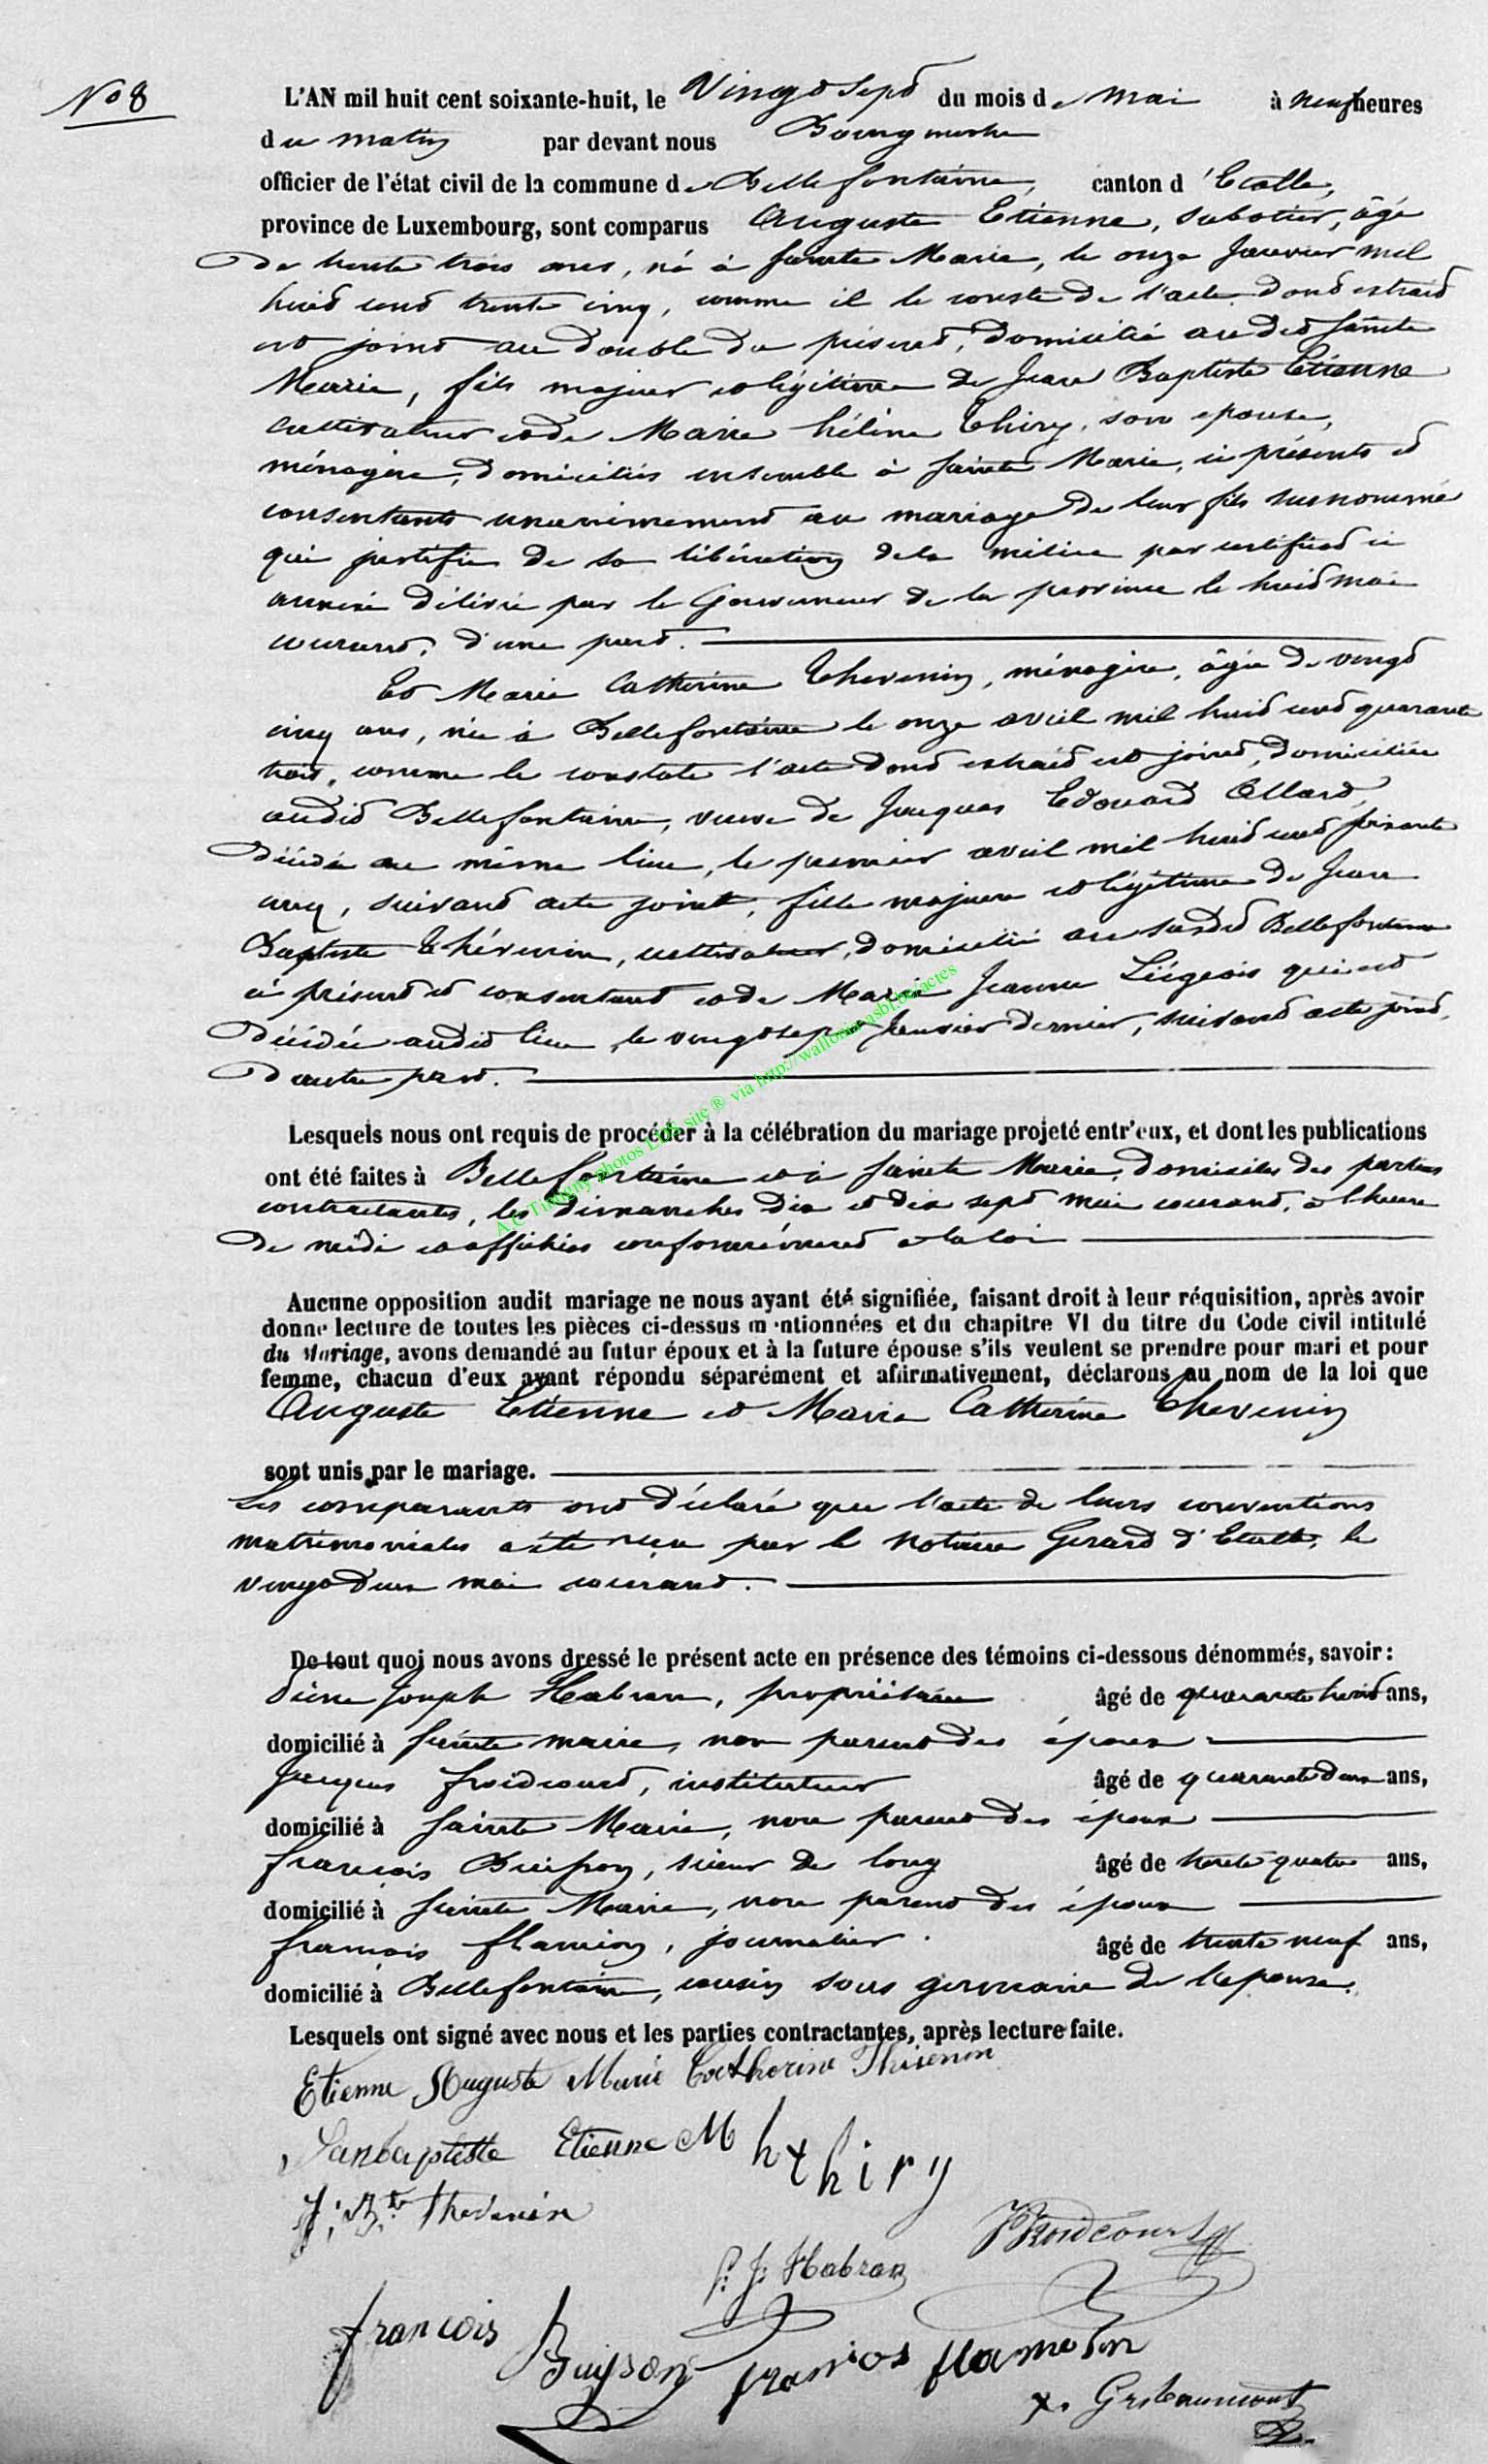 No 8
L'AN mil huit cent soixante-huit, le Vingt Sept du mois de mai à neuf heures
du matin par devant nous Bourgmestre
officier de l'état civil de la commune de Bellefontaine, canton d'Etalle,
province de Luxembourg, sont comparus Auguste Etienne, sabotier, âgé
de trente trois ans, né à Sainte Marie, le onze Janvier mil
huit cent trente cinq, comme il le conste de l'acte dont extrait
est joint au double du présent, domicilié au dit Sainte
Marie, fils majeur et légitime de Jean Baptiste Etienne
cultivateur et de Marie hélène Thiry, son epouse,
ménagère, domiciliés ensemble à Sainte Marie, ci présents et
consentants unanimement au mariage de leur fils susnommé
qui justifie de sa libération de la milice par certificat ci
annexé délivré par le Gouverneur de la province le huit mai
courant, d'une part.
Et Marie Catherine Thevenin, ménagère, âgée de vingt
cinq ans, née à Bellefontaine le onze avril mil huit cent quarante
trois, comme le constate l'acte dont extrait est joint, domiciliée
audit Bellefontaine, veuve de Jacques Edouard Allard,
décédé au même lieu, le premier avril mil huit cent soixante
cinq, suivant acte joint, fille majeure et légitime de Jean
Baptiste Thévenin, cultivateur, domicilié au susdit Bellefontaine
ci présent et consentant et de Marie Jeanne Liégeois qui est
décédée audit lieu, le vingt sept Janvier dernier, suivant acte joint,
d'autre part.
Lesquels nous ont requis de procéder à la célébration du mariage projeté entr'eux, et dont les publications
ont été faites à Bellefontaine et à Sainte Marie, domiciles des parties
contractantes, les dimanches dix et dix sept mai courant, à l'heure
de midi et affichées conformément à la loi
Aucune opposition audit mariage ne nous ayant été signifiée, faisant droit à leur réquisition, après avoir
donné lecture de toutes les pièces ci-dessus mentionnées et du chapitre VI du titre du Code civil intitulé
du Mariage, avons demandé au futur époux et à la future épouse s'ils veulent se prendre pour mari et pour
femme, chacun d'eux ayant répondu séparément et affirmativement, déclarons au nom de la loi que
Auguste Etienne et Marie Catherine Thevenin
sont unis par le mariage.
Les comparants ont déclaré que l'acte de leurs conventions
matrimoniales a été reçu par le Notaire Gerard d'Etalle, le
vingt deux mai courant.
De tout quoi nous avons dressé le présent acte en présence des témoins ci-dessous dénommés, savoir :
Pierre Joseph Habran, propriétaire âgé de quarante huit ans,
domicilié à Sainte marie, non parent des époux
Jacques froidcourt, instituteur âgé de quarante deux ans,
domicilié à Sainte Marie, non parent des époux
françois Buisson, scieur de long âgé de trente quatre ans,
domicilié à Sainte Marie, non parent des époux
françois flamion, journalier. âgé de trente neuf ans,
domicilié à Bellefontaine, cousin sous germain de l'epouse.
Lesquels ont signé avec nous et les parties contractantes, après lecture faite.
Etienne Auguste Marie Catherine Thivenin
Janbaptiste Etienne M h thiry
J: Bte thevenin
P: J: Habran JFroidcourt
francois Buisson francos flamion
A C Timigny photos LDS site ® via http://wallonia-asbl.be/actes